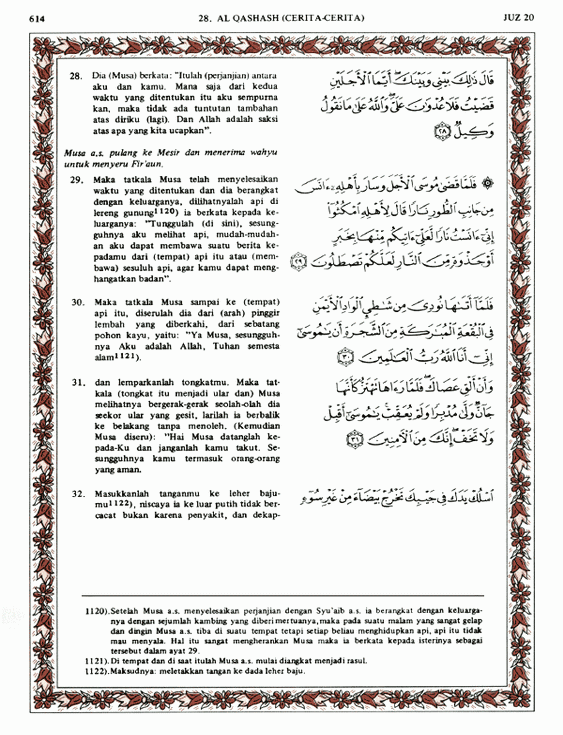 614 28. AL QASHASH (CERITA-CERITA) JUZ 20
28. Dia (Musa) berkata: "Itulah (perjanjian) antara
aku dan kamu. Mana saja dari kedua
waktu yang ditentukan itu aku sempurna
kan, maka tidak ada tuntutan tambahan
atas diriku (lagi). Dan Allah adalah saksi
atas apa yang kita ucapkan".
قَالَ ذَٰلِكَ بَيْنِي وَبَيْنَكَ أَيَّمَا الْأَجَلَيْنِ
قَضَيْتُ فَلَا عُدْوَانَ عَلَيَّ وَاللَّهُ عَلَىٰ مَا نَقُولُ
وَكِيلٌ ٢٨
Musa a.s. pulang ke Mesir dan menerima wahyu
untuk menyeru Fir'aun.
29. Maka tatkala Musa telah menyelesaikan
waktu yang ditentukan dan dia berangkat
dengan keluarganya, dilihatnyalah api di
lereng gunung1120) ia berkata kepada ke-
luarganya: "Tunggulah (di sini), sesung-
guhnya aku melihat api, mudah-mudah-
an aku dapat membawa suatu berita ke-
padamu dari (tempat) api itu atau (mem-
bawa) sesuluh api, agar kamu dapat meng-
hangatkan badan".
۞ فَلَمَّا قَضَىٰ مُوسَى الْأَجَلَ وَسَارَ بِأَهْلِهِ آنَسَ
مِن جَانِبِ الطُّورِ نَارًا قَالَ لِأَهْلِهِ امْكُثُوا
إِنِّي آنَسْتُ نَارًا لَّعَلِّي آتِيكُم مِّنْهَا بِخَبَرٍ
أَوْ جَذْوَةٍ مِّنَ النَّارِ لَعَلَّكُمْ تَصْطَلُونَ ٢٩
30. Maka tatkala Musa sampai ke (tempat)
api itu, diserulah dia dari (arah) pinggir
lembah yang diberkahi, dari sebatang
pohon kayu, yaitu: "Ya Musa, sesungguh-
nya Aku adalah Allah, Tuhan semesta
alam1121).
فَلَمَّا أَتَاهَا نُودِيَ مِن شَاطِئِ الْوَادِ الْأَيْمَنِ
فِي الْبُقْعَةِ الْمُبَارَكَةِ مِنَ الشَّجَرَةِ أَن يَا مُوسَىٰ
إِنِّي أَنَا اللَّهُ رَبُّ الْعَالَمِينَ ٣٠
31. dan lemparkanlah tongkatmu. Maka tat-
kala (tongkat itu menjadi ular dan) Musa
melihatnya bergerak-gerak seolah-olah dia
seekor ular yang gesit, larilah ia berbalik
ke belakang tanpa menoleh. (Kemudian
Musa diseru): "Hai Musa datanglah ke-
pada-Ku dan janganlah kamu takut. Se-
sungguhnya kamu termasuk orang-orang
yang aman.
وَأَنْ أَلْقِ عَصَاكَ فَلَمَّا رَآهَا تَهْتَزُّ كَأَنَّهَا
جَانٌّ وَلَّىٰ مُدْبِرًا وَلَمْ يُعَقِّبْ يَا مُوسَىٰ أَقْبِلْ
وَلَا تَخَفْ إِنَّكَ مِنَ الْآمِنِينَ ٣١
32. Masukkanlah tanganmu ke leher baju-
mu1122), niscaya ia ke luar putih tidak ber-
cacat bukan karena penyakit, dan dekap-
اسْلُكْ يَدَكَ فِي جَيْبِكَ تَخْرُجْ بَيْضَاءَ مِنْ غَيْرِ سُوءٍ
1120).Setelah Musa a.s. menyelesaikan perjanjian dengan Syu'aib a.s. ia berangkat dengan keluarga-
nya dengan sejumlah kambing yang diberi mertuanya, maka pada suatu malam yang sangat gelap
dan dingin Musa a.s. tiba di suatu tempat tetapi setiap beliau menghidupkan api, api itu tidak
mau menyala. Hal itu sangat mengherankan Musa maka ia berkata kepada isterinya sebagai
tersebut dalam ayat 29.
1121). Di tempat dan di saat itulah Musa a.s. mulai diangkat menjadi rasul.
1122).Maksudnya: meletakkan tangan ke dada leher baju.